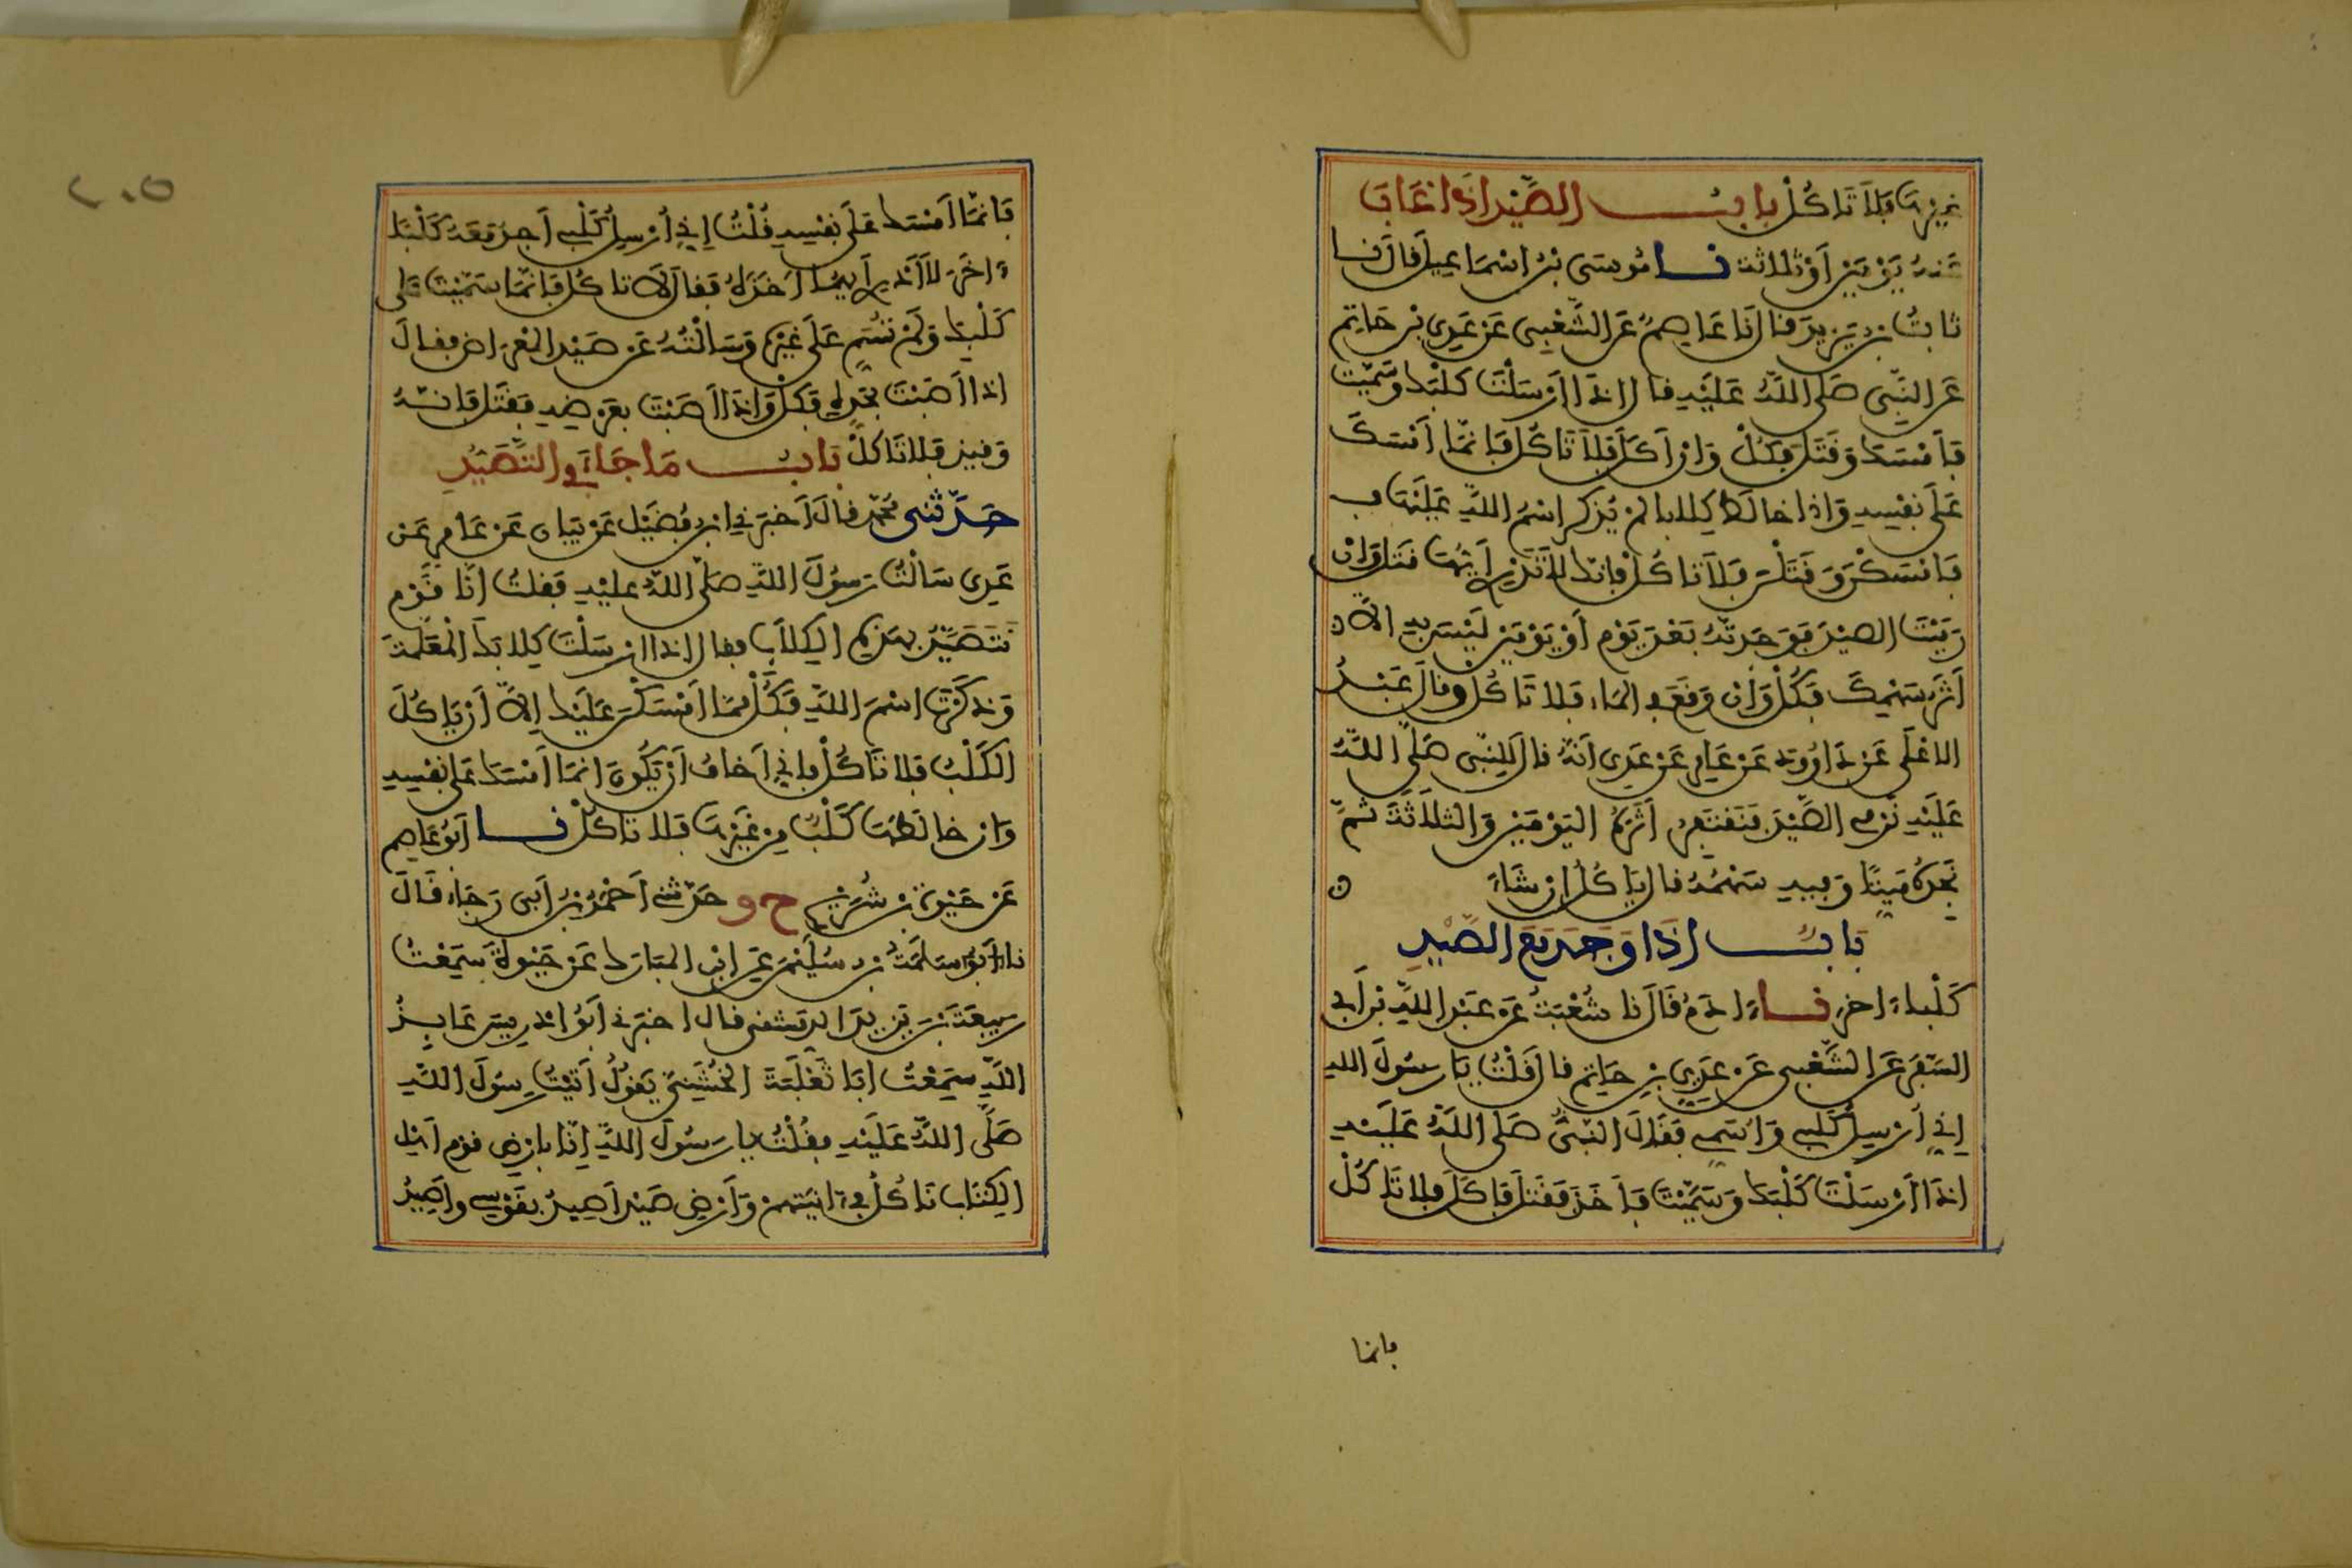 غيرها فلا تاكل باب الصيد اذا غاب
عنه يومين او ثلاثة نا موسى بن اسماعيل قال نا
ثابت بن يزيد قال نا عاصم عن الشعبي عن عدي بن حاتم
عن النبي صلى الله عليه قال اذا ارسلت كلبك وسميت
فامسك وقتل فكل وان اكل فلا تاكل فانما امسك
على نفسه واذا خالط كلابا لم يذكر اسم الله عليها ف
فامسكن وقتلن فلا تاكل فانك لا تدري ايها قتل وان
رميت الصيد فوجدته بعد يوم او يومين ليس به الا
اثر سهمك فكل وان وقع في الماء فلا تاكل وقال عبد
الاعلى عن داوود عن عامر عن عدي انه قال للنبي صلى الله
عليه نرمي الصيد فنقتفر اثره اليومين والثلاثة ثم
نجده ميتا وفيه سهمه قال ياكل ان شاء
باب اذا وجد مع الصيد
كلبا ءاخر نا ءادم قال نا شعبة عن عبد الله بن ابي
السفر عن الشعبي عن عدي بن حاتم قال قلت يا رسول الله
اني ارسل كلبي واسمي فقال النبي صلى الله عليه
اذا ارسلت كلبك وسميت فاخذ فقتل فاكل فلا تاكل
فانما
٢٠٥
فانما امسك على نفسه قلت اني ارسل كلبي اجد معه كلبا
ءاخر لا ادري ايهما اخذه فقال لا تاكل فانما سميت على
كلبك ولم تسم على غيره وسالته عن صيد المعراض فقال
اذا اصبت بحده فكل واذا اصبت بعرضه فقتل فانه
وقيذ فلا تاكل باب ما جاء في التصيد
حدثني محمد قال اخبرني ابن فضيل عن بيان عن عامر عن
عدي سالت رسول الله صلى الله عليه فقلت انا قوم
نتصيد بهذه الكلاب فقال اذا ارسلت كلابك المعلمة
وذكرت اسم الله فكل مما امسكن عليك الا ان ياكل
الكلب فلا تاكل فاني اخاف ان يكون انما امسك على نفسه
وان خالطها كلب من غيرها فلا تاكل نا ابو عاصم
عن حيوة بن شريح ح و حدثني احمد بن ابي رجاء قال
نا سلمة بن سليمن عن ابن المبارك عن حيوة سمعت
ربيعة بن يزيد الدمشقي قال اخبرني ابو ادريس عايذ
الله سمعت ابا ثعلبة الخشني يقول اتيت رسول الله
صلى الله عليه فقلت يا رسول الله انا بارض قوم اهل
الكتاب ناكل في ءانيتهم وارض صيد اصيد بقوسي واصيد